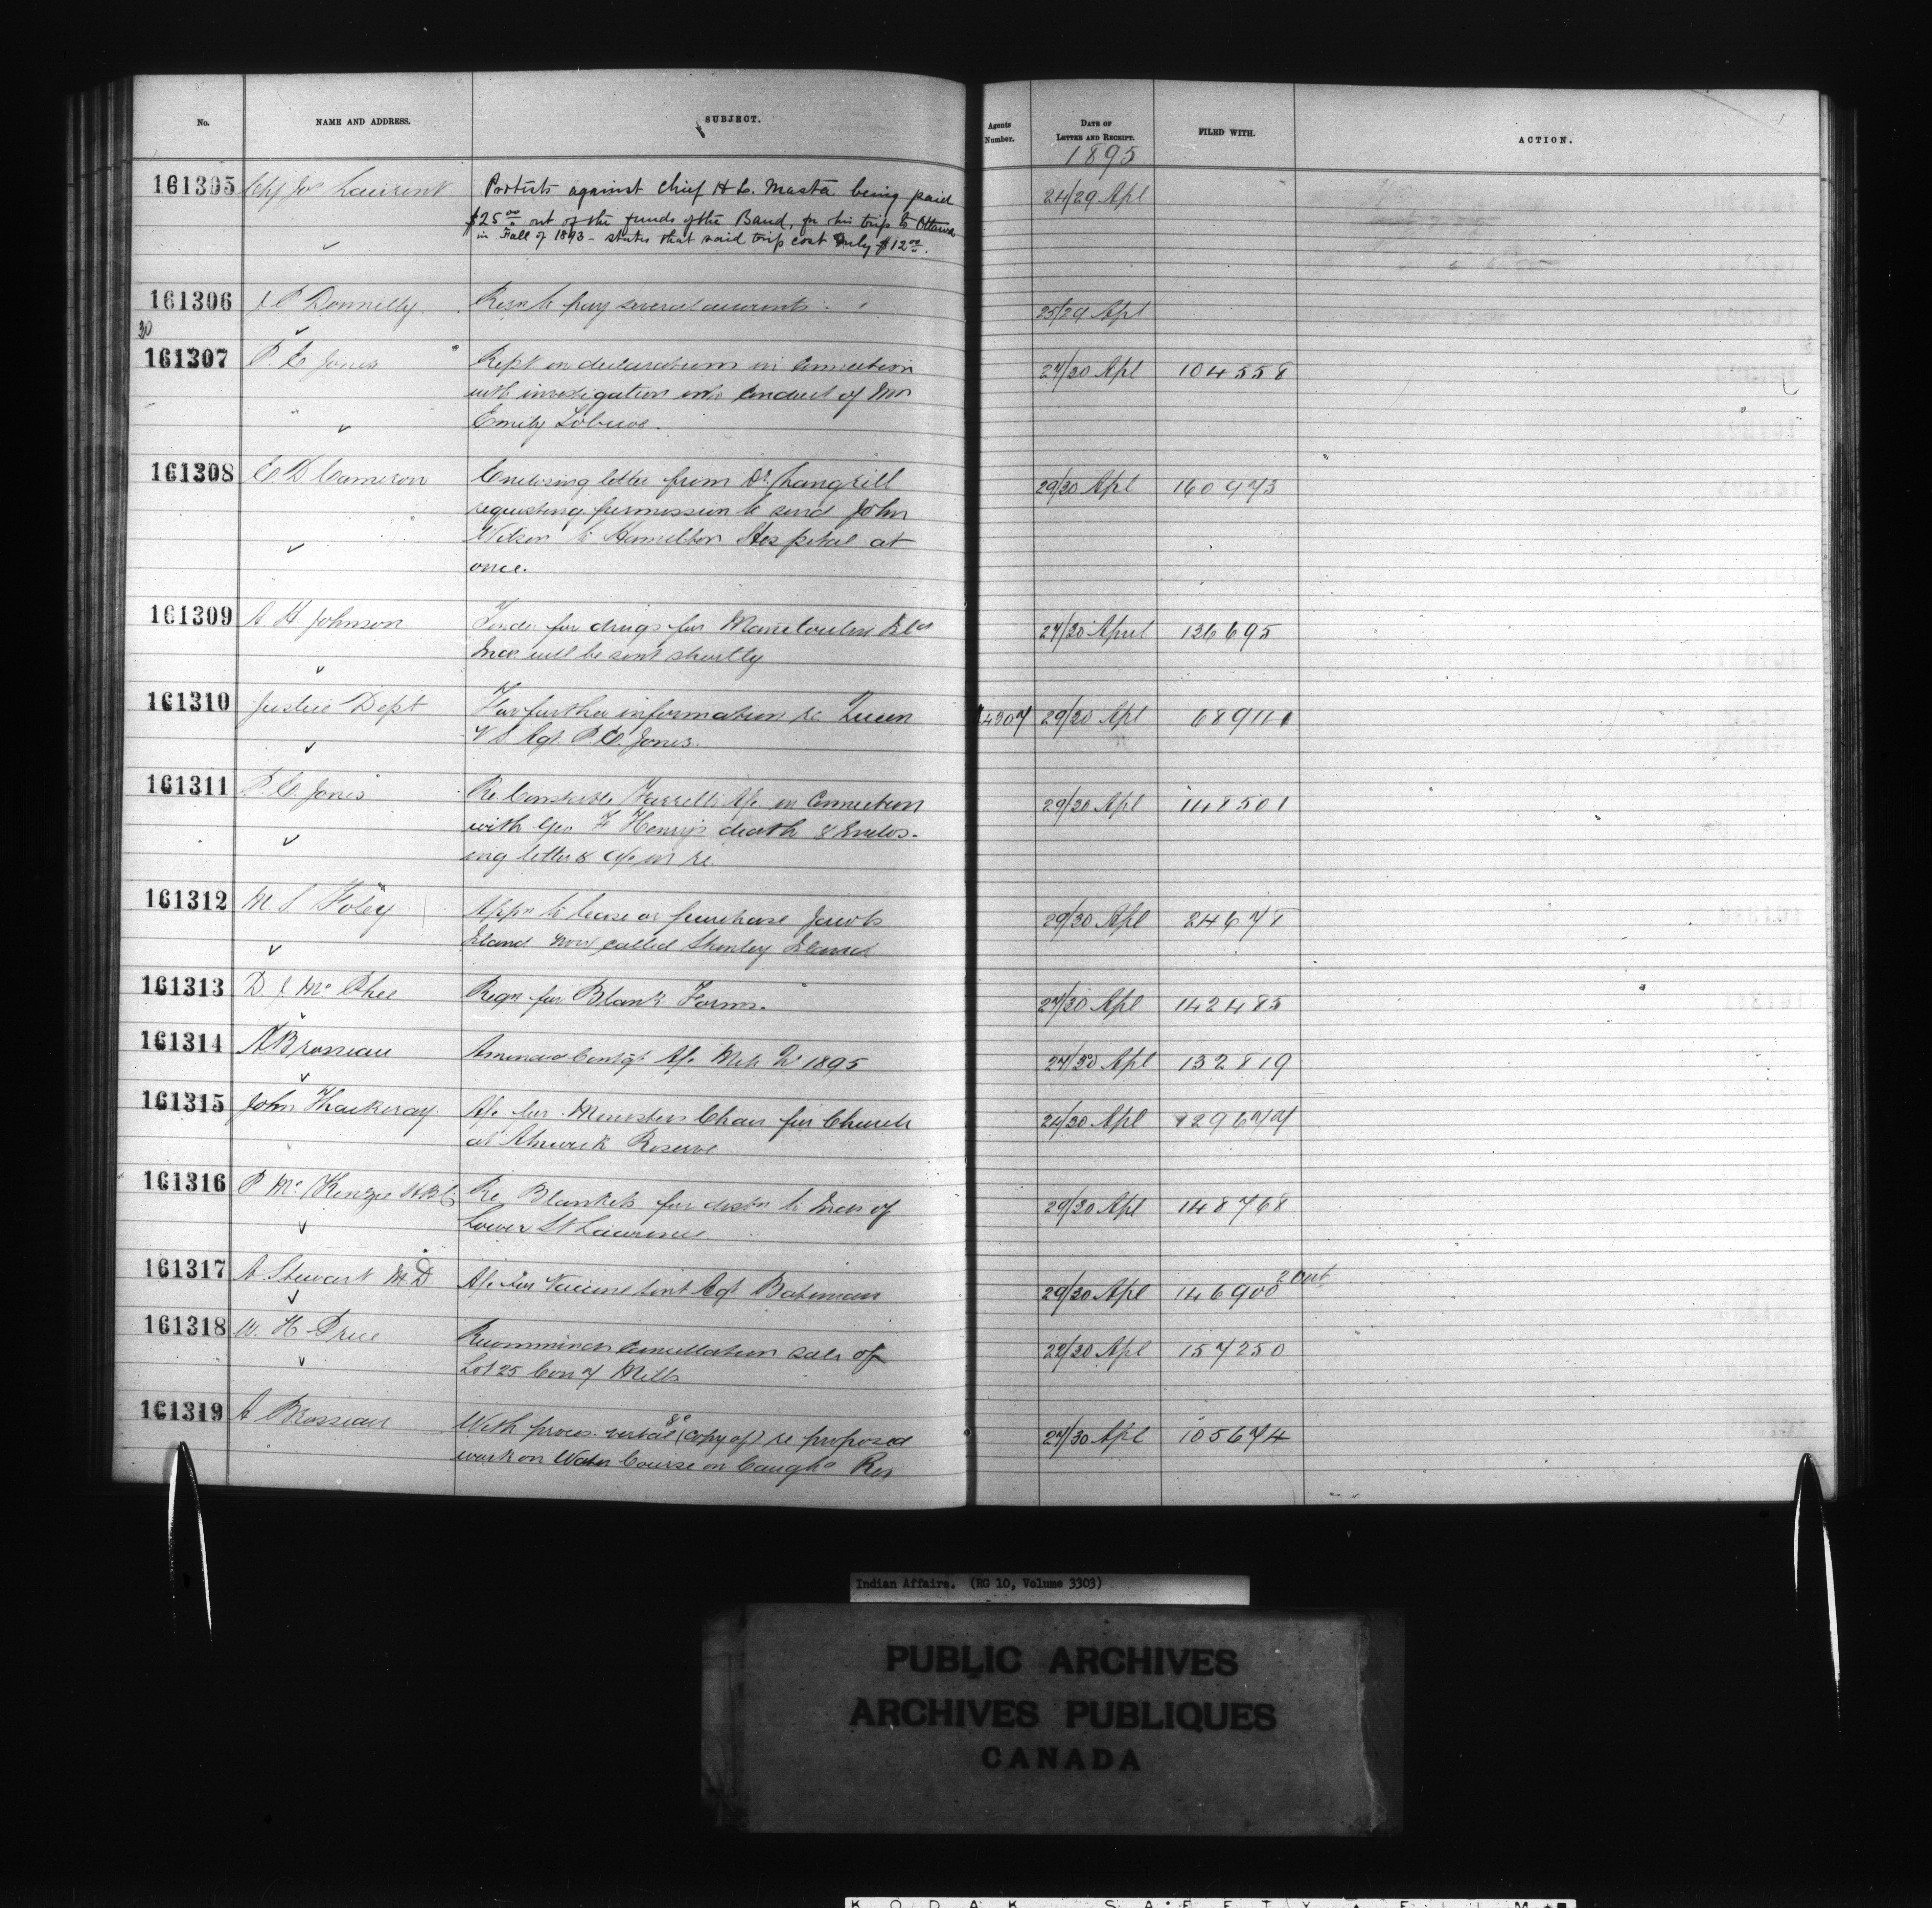 No. NAME AND ADDRESS. SUBJECT. Agents Number. DATE OF LETTER AND RECEIPT. FILED WITH. ACTION.
1895
161305 Chf Jos Laurent Protests against Chief H L. Masta being paid 24/29 Apl
$25.00 out of the funds of the Band, for his trip to Ottawa
in Fall of 1893 - states that said trip cost only $12.00.
161306 J P Donnelly Reqn to pay several accounts 25/29 Apl
30
161307 P. E Jones Rept on declarations in Connection 27/30 Apl 104558
with investigation into Conduct of Mrs
Emily
161308 E D Cameron Enclosing letter from Dr Langrill 29/30 Apl 160973
requesting permission to send John
Wilson to Hamilton Hospital at
once.
161309 A H Johnson Tender for drugs for Manitoulin Isd 27/30 April 136695
Inds will be sent shortly
161310 Justice Dept For further information re Queen 4307 29/30 Apl 68911
V S Agt P. E. Jones.
161311 P. E. Jones Re Constable Farrell's A/c in Connection 29/30 Apl 148501
with Geo F Henry's death & Enclos-
ing letter & a/c in re.
161312 M. S Foley Appn to lease or purchase Jacobs 29/30 Apl 24678
Island now called Stanley Island
161313 D J McPhee Reqn for Blank Forms. 27/30 Apl 142483
161314 A Brosseau Amended Contgt A/c Mch Qr 1895 27/30 Apl 132819
161315 John Thackeray A/c for Ministers Chair for Church 24/30 Apl 129677
at Alnwick Reserve
161316 P McKenzie H.B.C. Re Blankets for distn to Inds of 29/30 Apl 148768
Lower St Lawrence
161317 A Stewart M.D. A/c for Vaccine sent Agt Bateman 29/30 Apl 146900
161318 W. H Price Recommends Cancellation sale of 22/30 Apl 157250
Lot 25 Con 7 Mills
161319 A Brosseau With proces-verbal (copy of) re proposed 27/30 Apl 105674
work on Water Course on Caugha Res
Indian Affairs. (RG 10, Volume 3303)
PUBLIC ARCHIVES
ARCHIVES PUBLIQUES
CANADA
KODAK SAFETY FILM